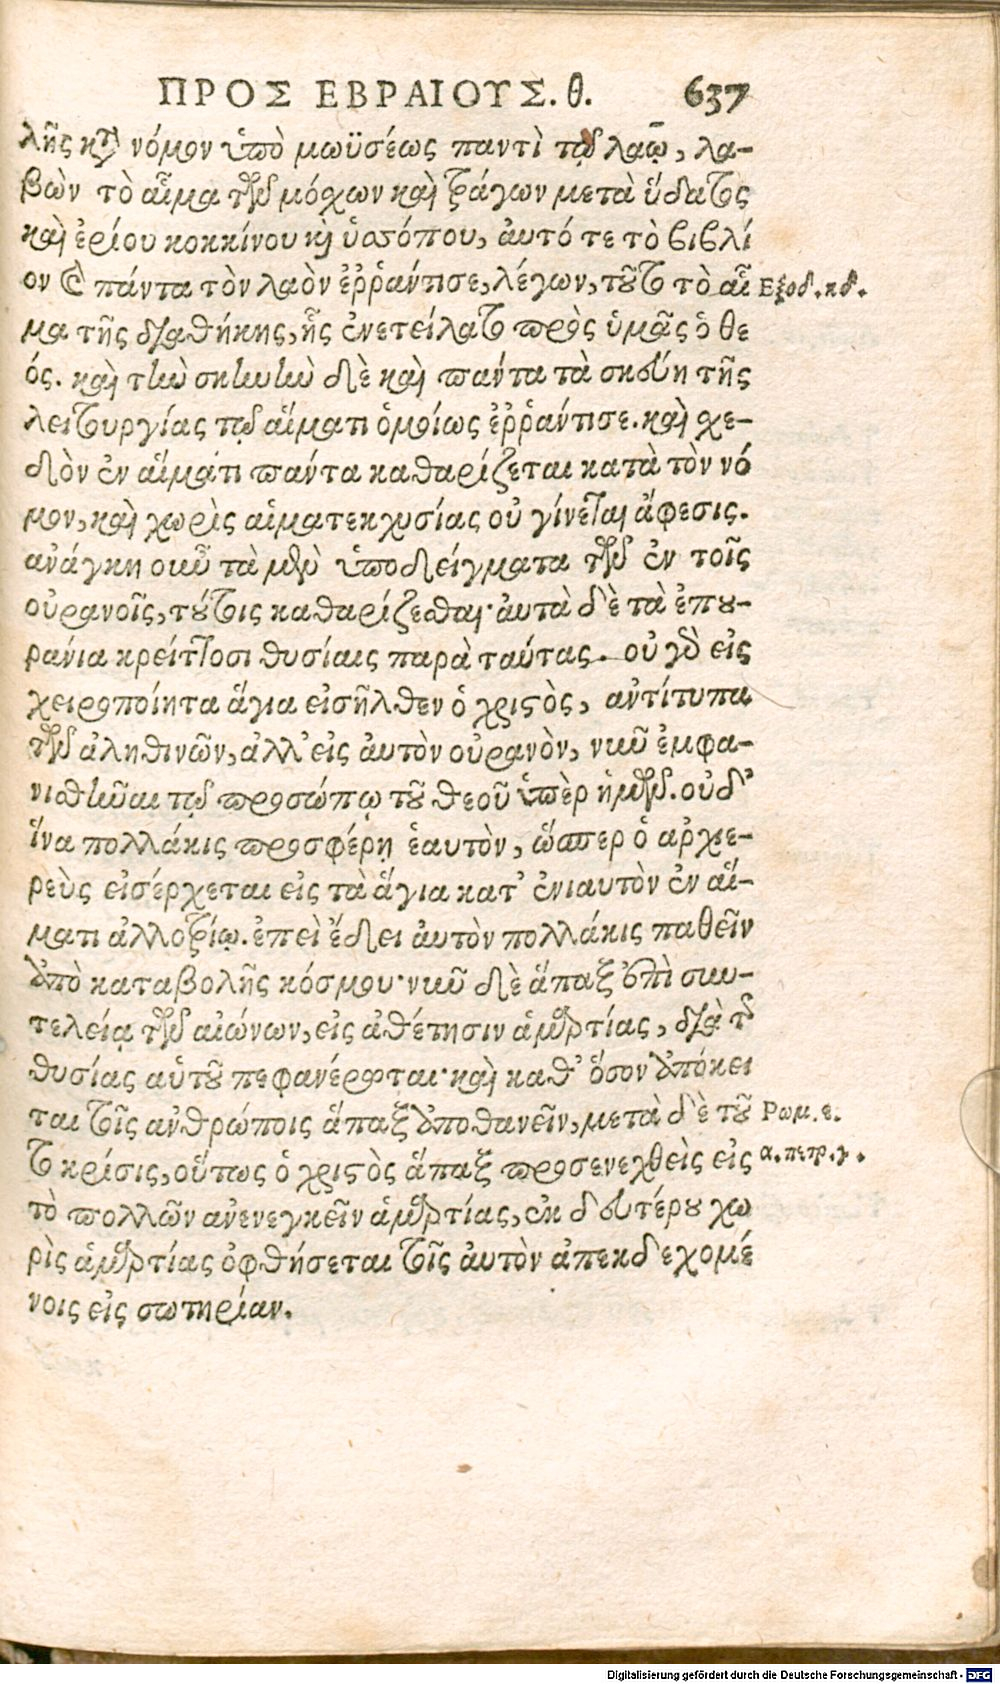 ΠΡΟΣ ΕΒΡΑΙΟΥΣ. θ. 637
λῆς κτ̀ νόμον ὑπὸ μωϋσέως παντὶ τῷ λαῷ, λα-
βὼν τὸ αἷμα τῶν μόχων καὶ τράγων μετὰ ὕδατος
καὶ ἐρίου κοκκίνου κὶ ὑσσόπου, ἀυτό τε τὸ βιβλί
ον καὶ πάντα τὸν λαὸν ἐῤῥάντισε, λέγων, τοῦτο τὸ αἷ
Εξοδ. κδ.
μα τῆς διαθήκης, ἧς ἐνετείλατο πρὸς ὑμᾶς ὁ θε
ός. καὶ τὴν σκηνὴν δὲ καὶ πάντα τὰ σκεύη τῆς
λειτουργίας τῷ αἵματι ὁμοίως ἐῤῥάντισε. καὶ χε-
δὸν ἐν αἵματι πάντα καθαρίζεται κατὰ τὸν νό
μον, καὶ χωρὶς αἱματεκχυσίας οὐ γίνεται ἄφεσις.
ανάγκη οὖν τὰ μὲν ὑποδείγματα τῶν ἐν τοῖς
οὐρανοῖς, τούτοις καθαρίζεσθαι· ἀυτὰ δὲ τὰ ἐπου-
ράνια κρείττοσι θυσίαις παρὰ ταύτας. οὐ γὰρ εἰς
χειροποίητα ἅγια εἰσῆλθεν ὁ χριστὸς, αντίτυπα
τῶν ἀληθινῶν, ἀλλ' εἰς ἀυτὸν οὐρανὸν, νῦν ἐμφα-
νισθῆναι τῷ προσώπῳ τοῦ θεοῦ ὑπὲρ ἡμῶν. οὐδ'
ἵνα πολλάκις προσφέρῃ ἑαυτὸν, ὥσπερ ὁ αρχιε-
ρεὺς εἰσέρχεται εἰς τὰ ἅγια κατ' ἐνιαυτὸν ἐν αἵ-
ματι ἀλλοτρίῳ. ἐπεὶ ἔδει ἀυτὸν πολλάκις παθεῖν
ἀπὸ καταβολῆς κόσμου· νῦν δὲ ἅπαξ ἐπὶ συν-
τελείᾳ τῶν αἰώνων, εἰς ἀθέτησιν ἁμαρτίας, διὰ τῆς
θυσίας αὑτοῦ πεφανέρωται· καὶ καθ' ὅσον ἀπόκει
ται τοῖς ανθρώποις ἅπαξ ἀποθανεῖν, μετὰ δὲ τοῦ
Ρωμ. ε.
το κρίσις, οὕτως ὁ χριστὸς ἅπαξ προσενεχθεὶς εἰς
α. πετρ. γ.
τὸ πολλῶν ανενεγκεῖν ἁμαρτίας, ἐκ δευτέρου χω
ρὶς ἁμαρτίας ὀφθήσεται τοῖς ἀυτὸν ἀπεκδεχομέ
νοις εἰς σωτηρίαν.
Digitalisierung gefördert durch die Deutsche Forschungsgemeinschaft - DFG